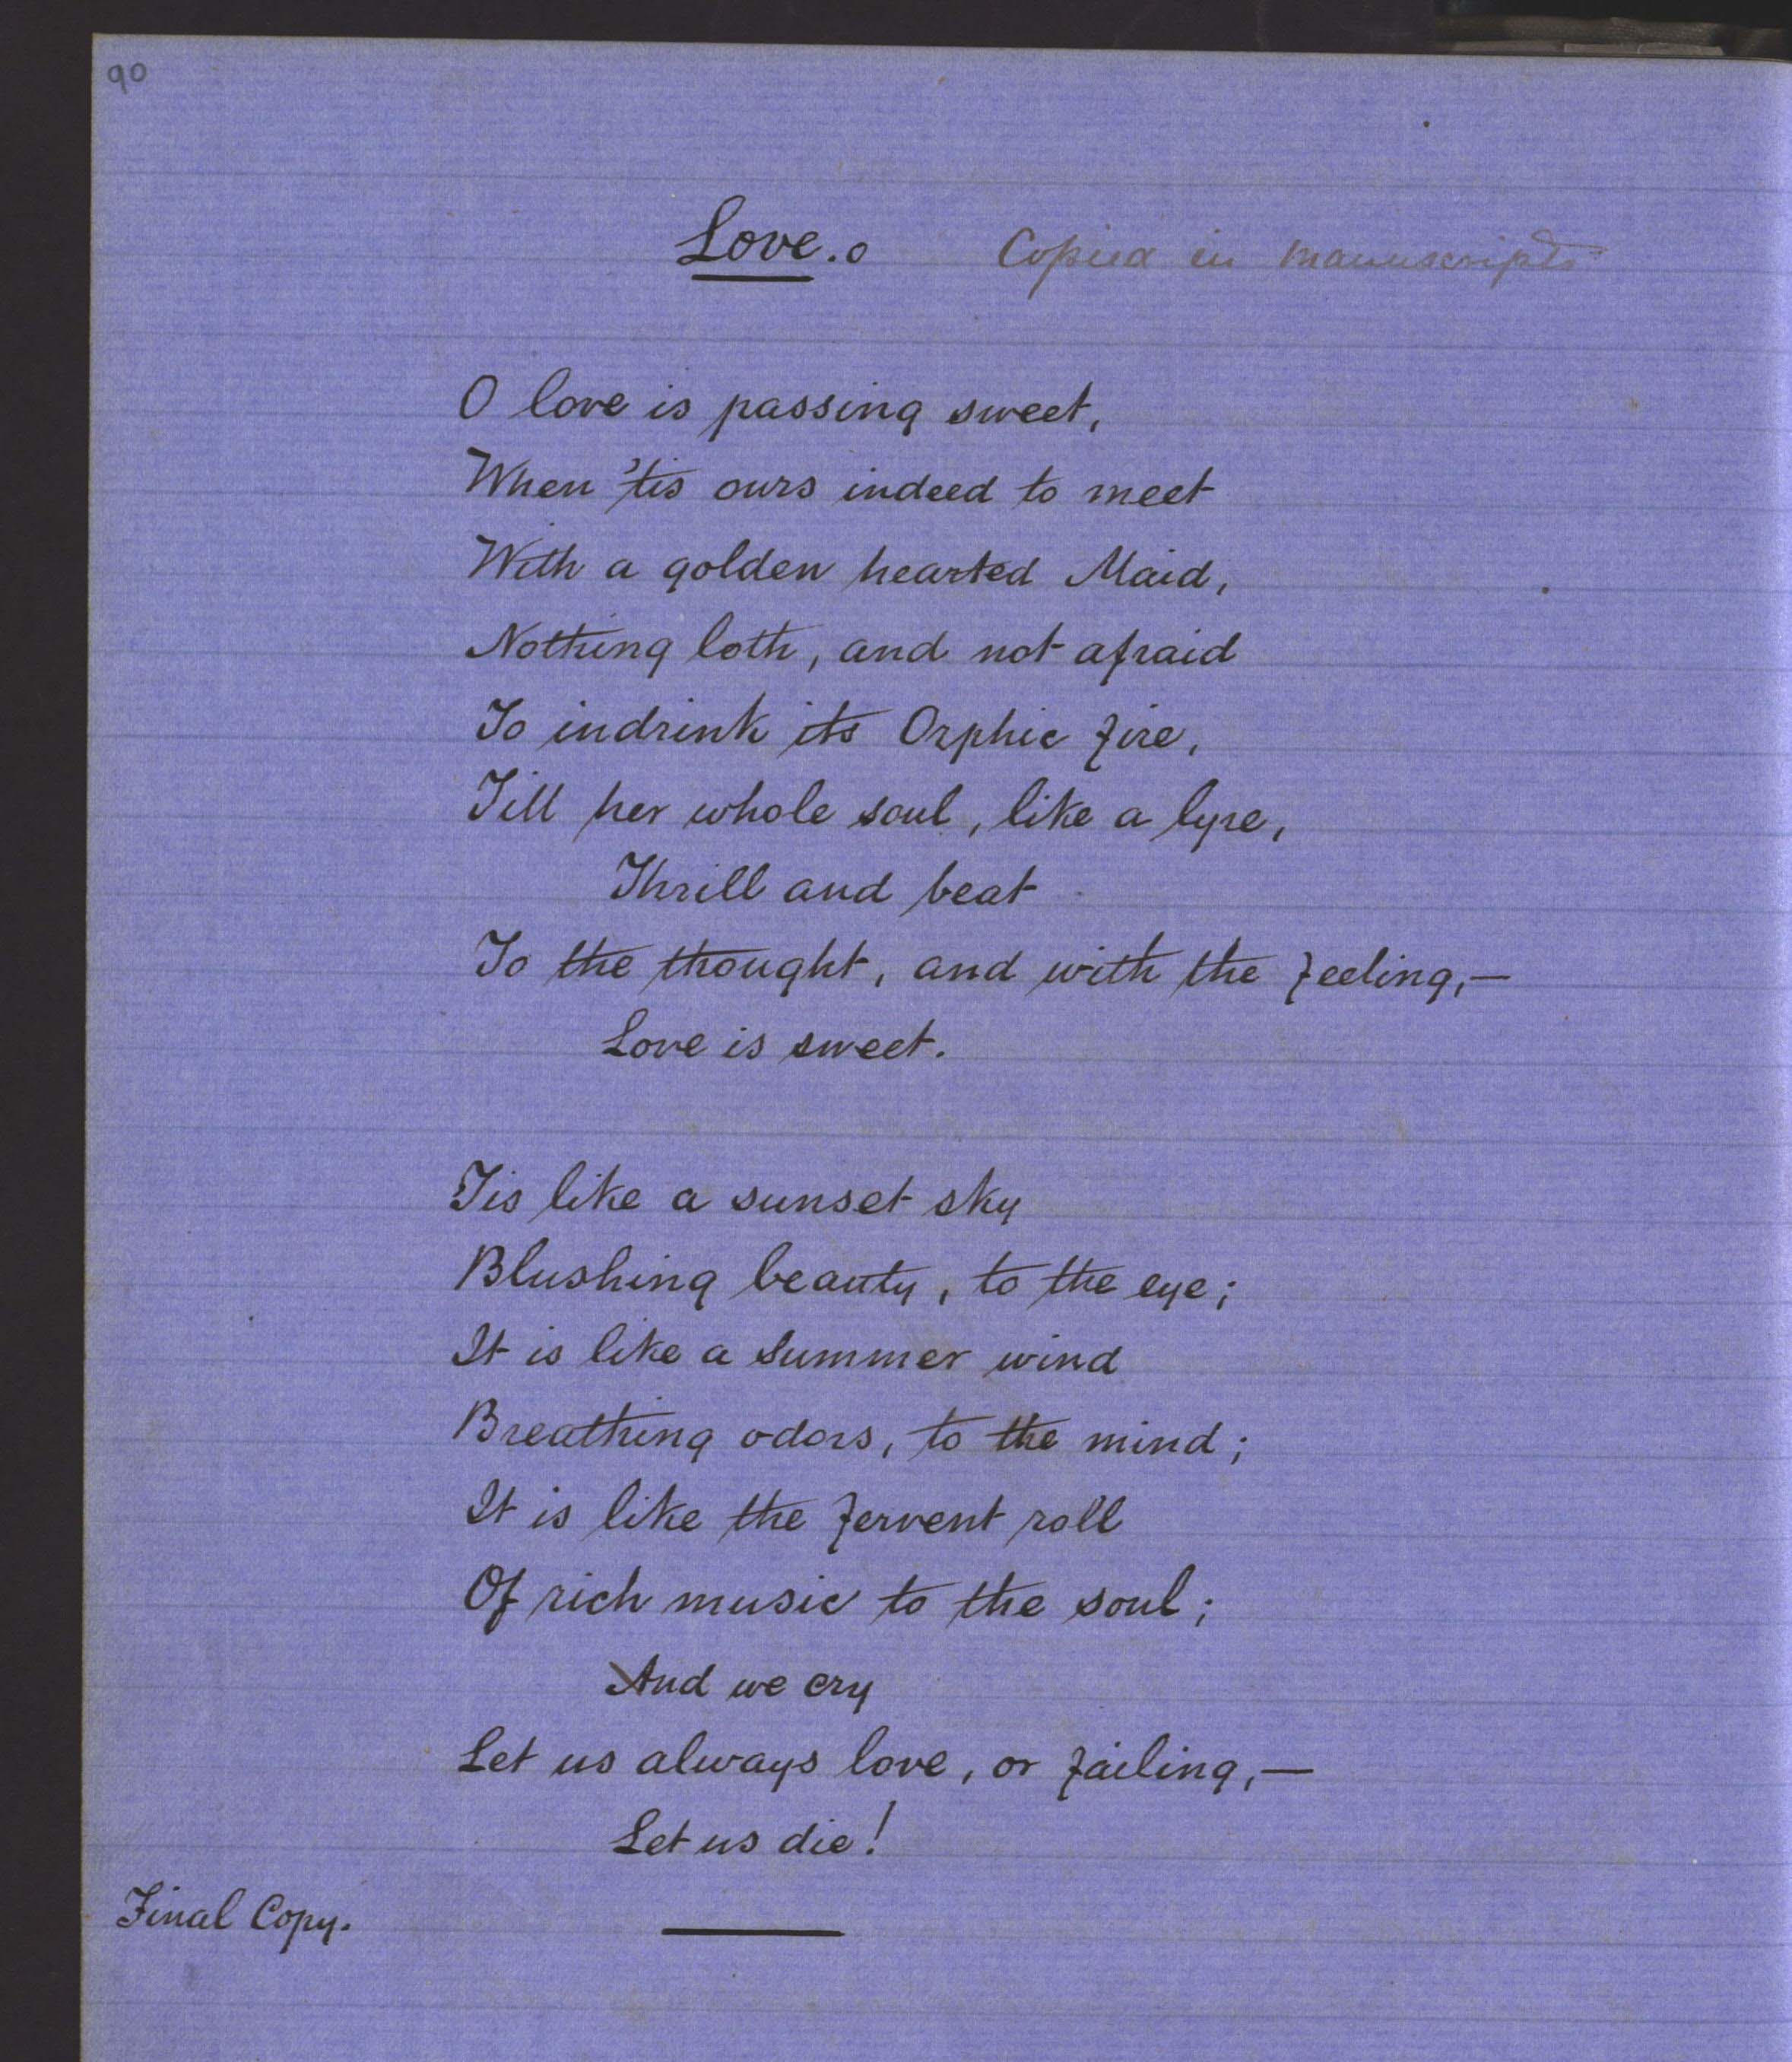 90
Love.o Copied in manuscript
O love is passing sweet,
When 'tis ours indeed to meet
With a golden hearted Maid,
Nothing loth, and not afraid
To indrink its Orphic fire,
Till her whole soul, like a lyre,
Thrill and beat
To the thought, and with the feeling,—
Love is sweet.
Tis like a sunset sky
Blushing beauty, to the eye;
It is like a summer wind
Breathing odors, to the mind;
It is like the fervent roll
Of rich music to the soul;
And we cry
Let us always love, or failing,—
Let us die!
Final Copy.